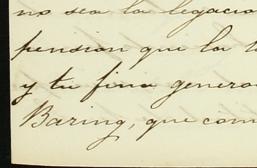 no sea la legacio
pension que la
y tu fina genero
Baring, que com